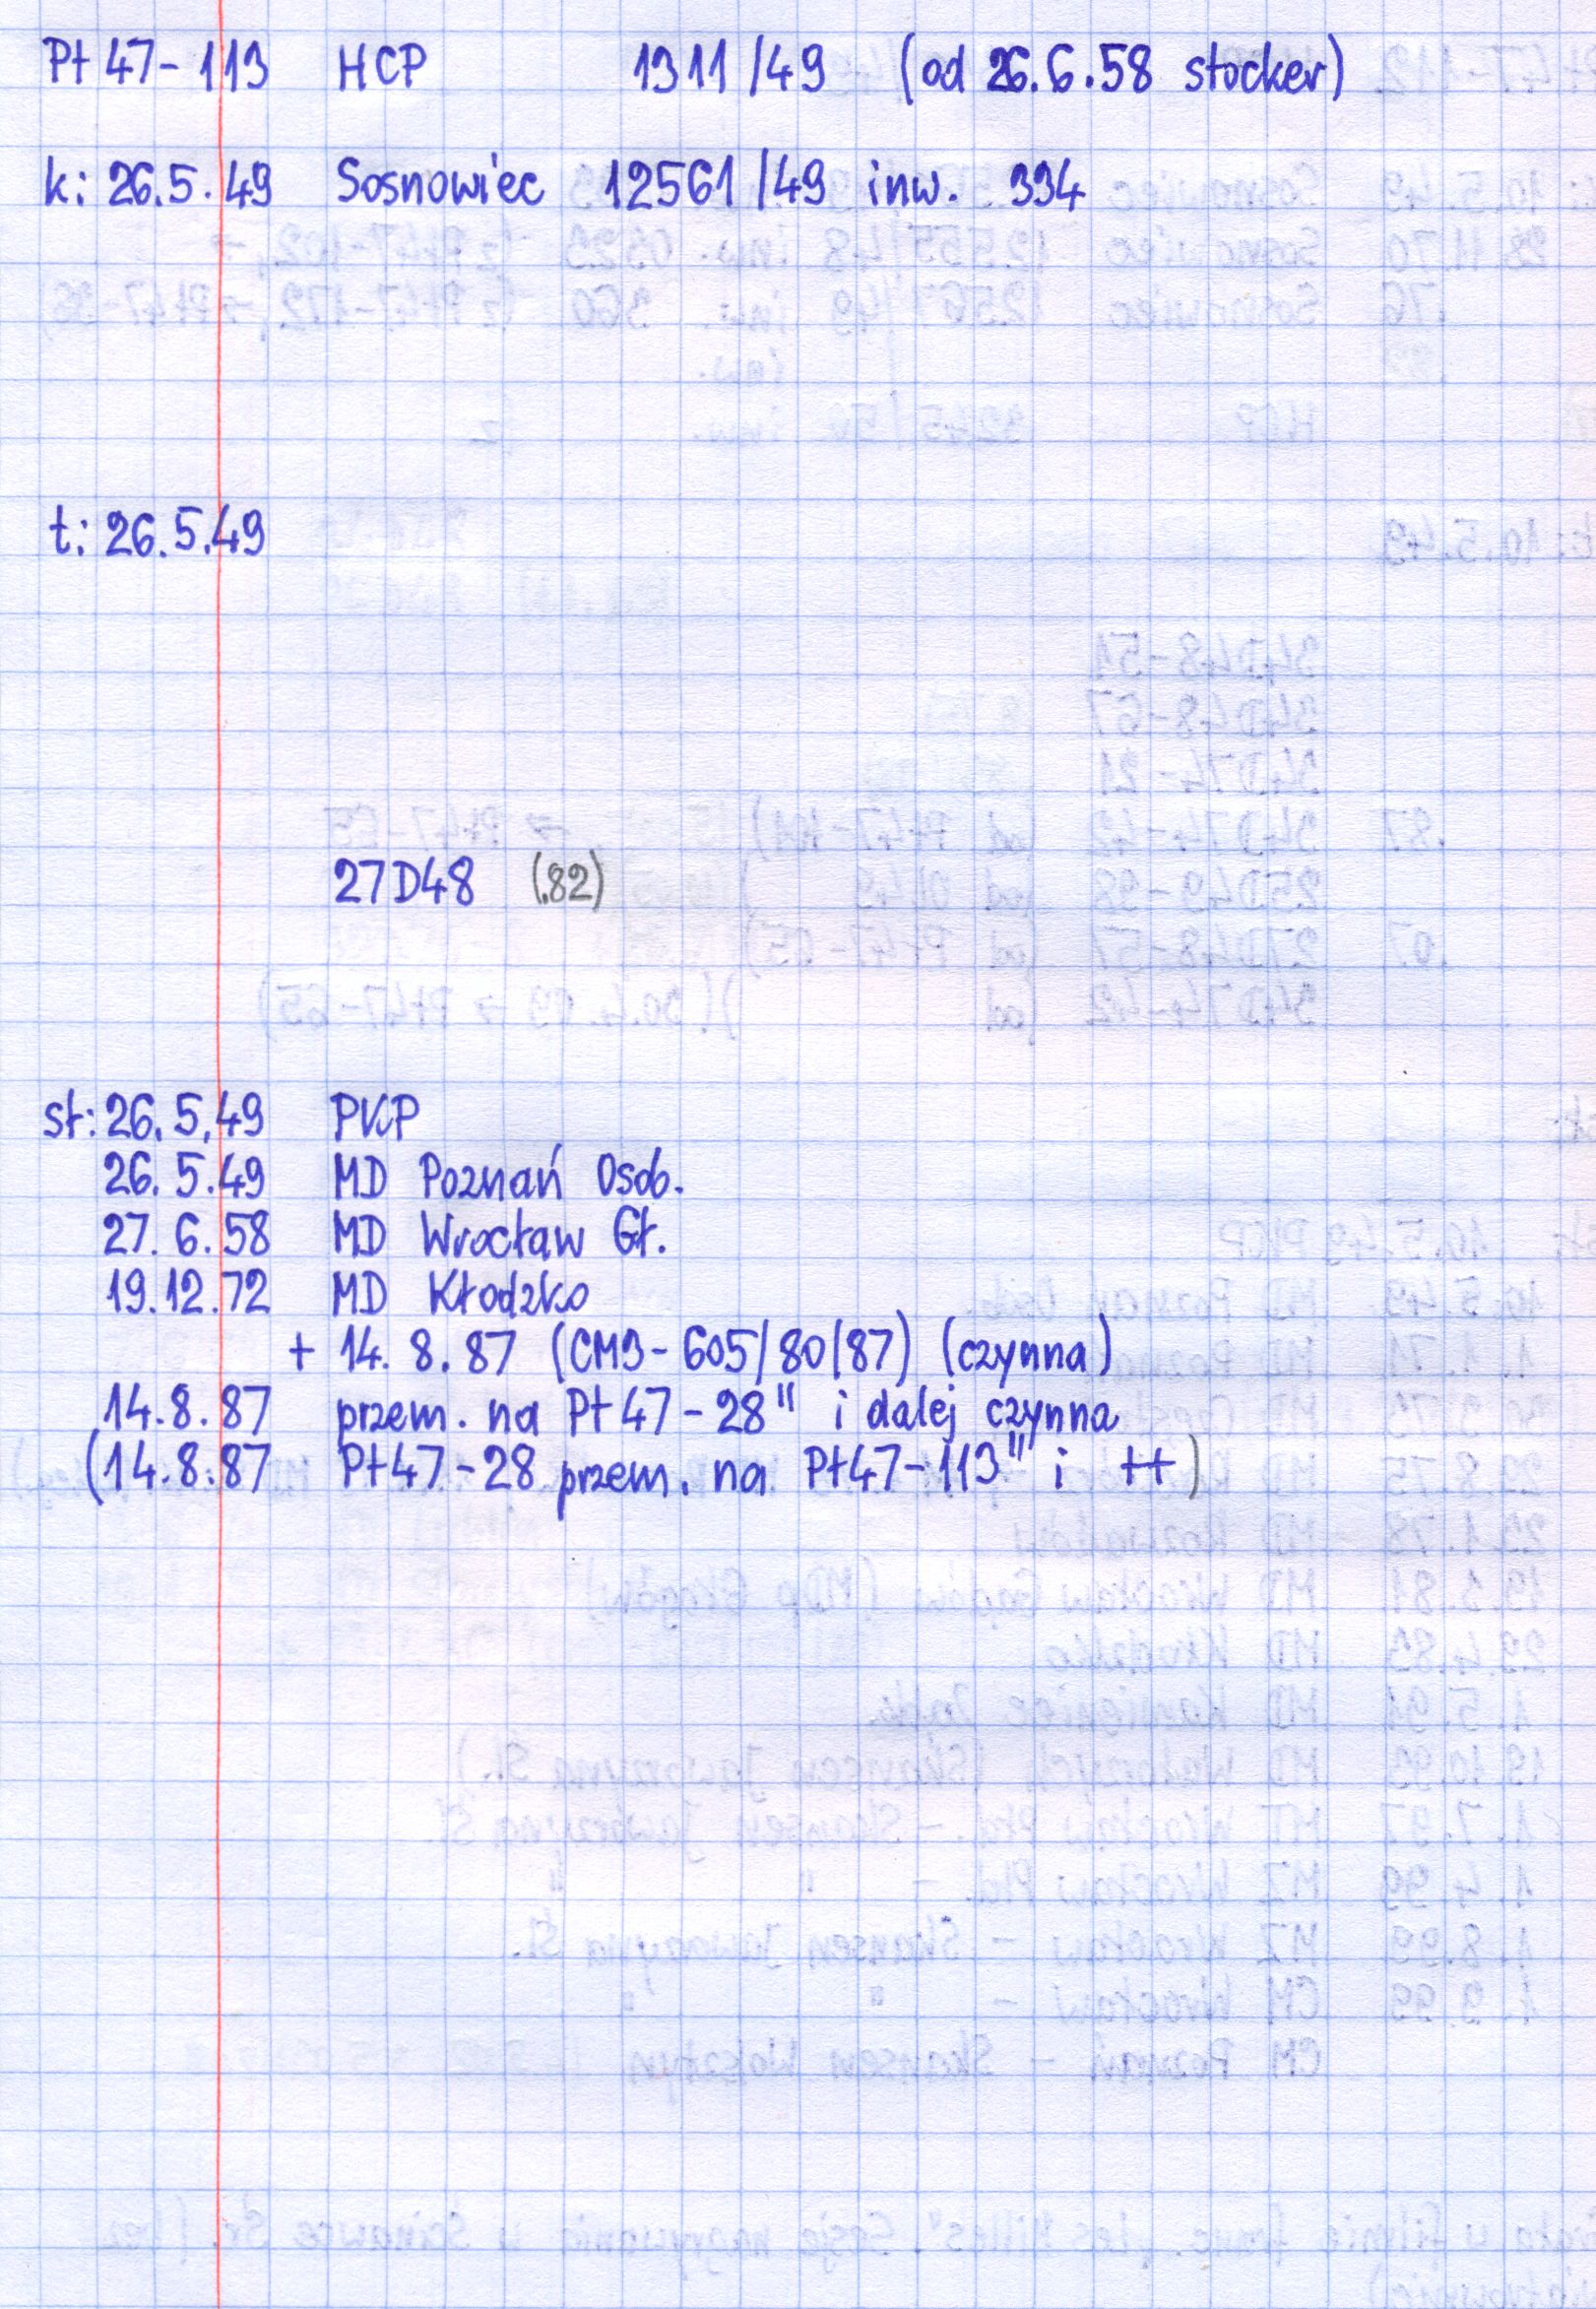 Pt 47-113 HCP 1311/49 (od 26.6.58 stocker)
k: 26.5.49 Sosnowiec 12561/49 inw. 334
t: 26.5.49
27D48 (.82)
st: 26.5.49 PKP
26.5.49 MD Poznań Osob.
27.6.58 MD Wrocław Gł.
19.12.72 MD Kłodzko
+ 14.8.87 (CM3-605/80/87) (czynna)
14.8.87 przem. na Pt 47-28" i dalej czynna
(14.8.87 Pt47-28 przem. na Pt47-113" i ++)